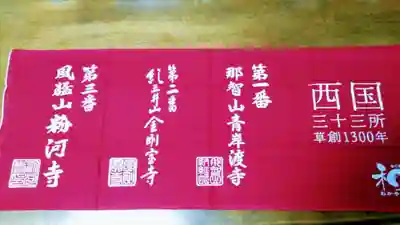 西国
三十三所
草創1300年
第一番
那智山青岸渡寺
第二番
紀三井山金剛宝寺
第三番
風猛山粉河寺